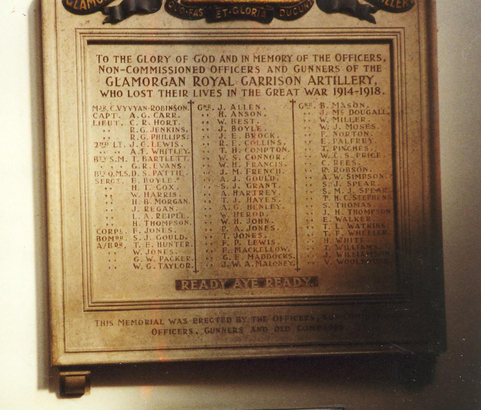 QUO FAS ET GLORIA DUCUNT
TO THE GLORY OF GOD AND IN MEMORY OF THE OFFICERS,
NON-COMMISSIONED OFFICERS AND GUNNERS OF THE
GLAMORGAN ROYAL GARRISON ARTILLERY,
WHO LOST THEIR LIVES IN THE GREAT WAR 1914-1918.
MAJ. C. VYVYAN-ROBINSON.
CAPT. A. G. CARR.
LIEUT. C. R. HORT.
" R.G. JENKINS.
" R.G. PHILLIPS.
2ND LT. J. C. LEWIS.
" A. J. WHITLEY.
BTY S.M. T. BARTLETT.
" G. R. EVANS.
BTY Q.M.S. D. S. PATTIE.
SERGT. E. BOYLE.
" H. T. COX.
" W. HARRIS.
" H. B. MORGAN.
" J. REGAN.
" L. A. REIPLE.
" H. THOMPSON.
CORPL. F. JONES.
BOMBR. S. J. GOULD.
A/BDR. T. E. HUNTER.
" W. JONES.
" G. W. PACKER.
" W. G. TAYLOR.
GNR. J. ALLEN.
" H. ANSON.
" W. BEST.
" J. BOYLE.
" J. E. BROCK.
" R. E. COLLINS.
" T. H. COMPTON.
" W. S. CONNOR.
" W. H. FRANCIS.
" J. M. FRENCH.
" A. J. GOULD.
" S. J. GRANT.
" A. HARTREY.
" T. J. HAYES.
" A. G. HENLEY.
" W. HEROD.
" W. H. JOHN.
" E. A. JONES.
" T. JONES.
" F. P. LEWIS.
" P. MACKELLOW.
" G. E. MADDOCKS.
" J. W. A. MALONEY.
GNR. B. MASON.
" J. MC DOUGALL.
" W. MILLER.
" W. J. MOSES.
" F. NORTON.
" E. PALFREY.
" T. PISCHES.
" W. C. S. PRICE.
" C. REES.
" R. ROBSON.
" A. W. SIMPSON.
" S. J. SPEAR.
" S. M. J. SPEAR.
" T. H. C. STEPHENS.
" S. THOMAS.
" J. H. THOMPSON.
" E. WALKER.
" T. L. WATKINS.
" T. F. WHEELER.
" H. WHITE.
" J. WILLIAMS.
" J. WILLIAMSON.
" V.
READY AYE READY.
THIS MEMORIAL WAS ERECTED BY THE OFFICERS,
OFFICERS, GUNNERS AND OLD